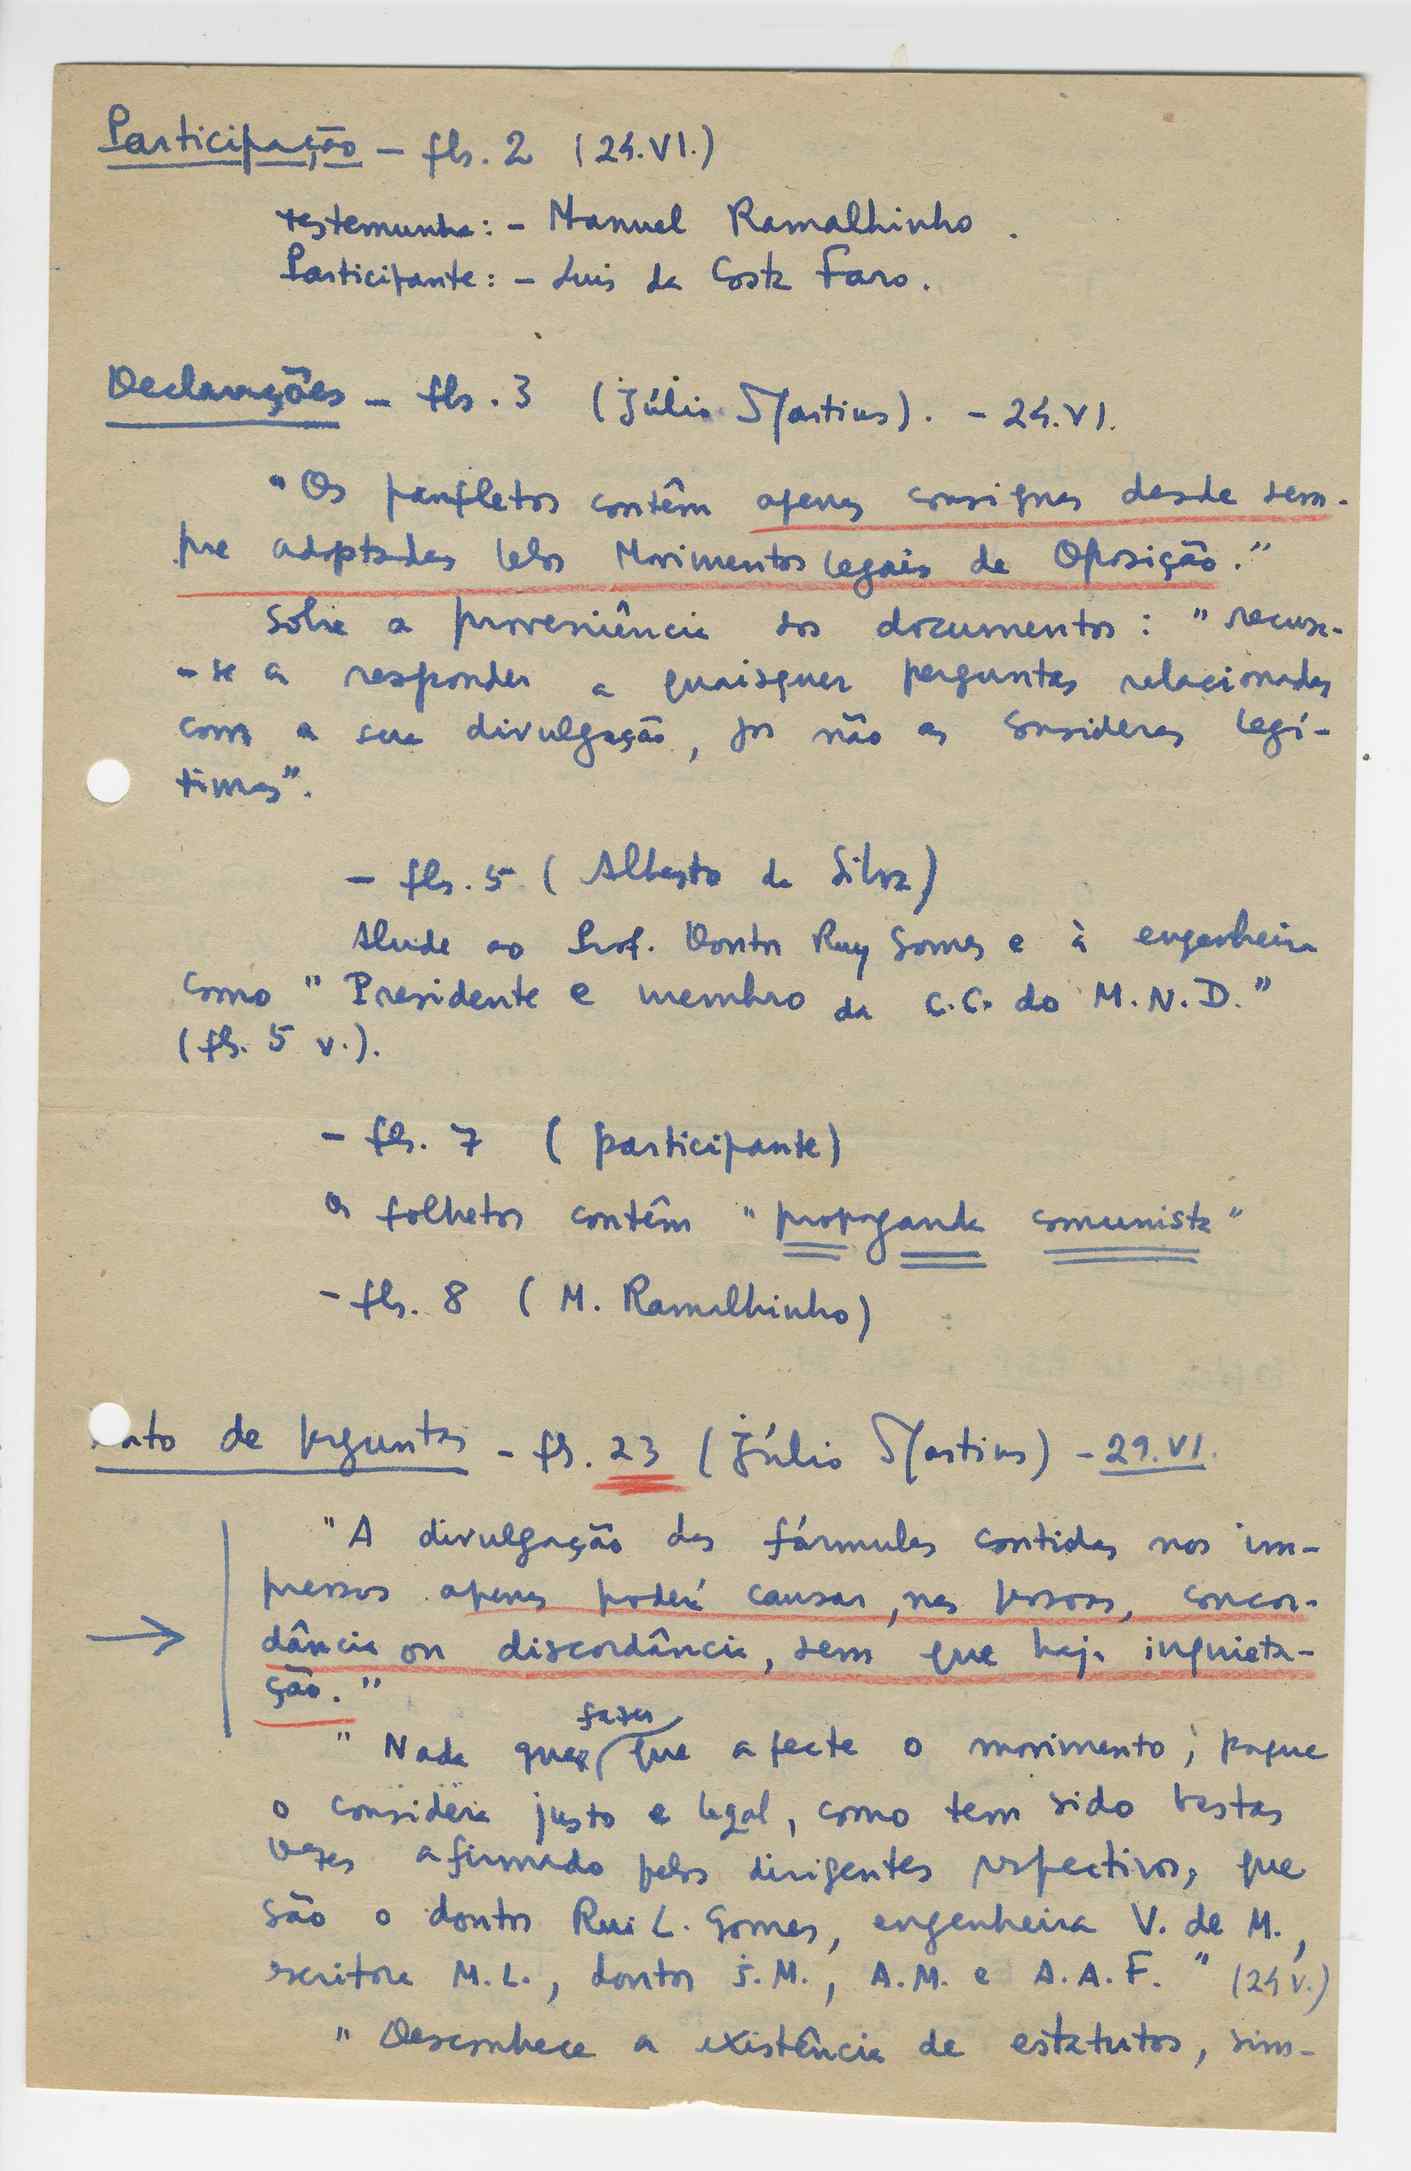 Participação - fls. 2 (24.VI.)
testemunha: - Manuel Ramalhinho.
Participante: - Luis da Costa Faro.
Declarações - fls. 3 (Júlio Martins). - 24.VI.
"Os panfletos contêm apenas consignas desde sem-
pre adoptadas pelos Movimentos legais de Oposição."
Sôbre a proveniência dos documentos: "recusa-
-se a responder a quaisquer perguntas relacionadas
com a sua divulgação, por não as considerar legí-
timas".
- fls. 5 (Alberto da Silva)
Alude ao Prof. Doutor Ruy Gomes e à engenheira
como "Presidente e membro da C.C. do M.N.D."
(fls. 5 v.).
- fls. 7 (participante)
Os folhetos contêm "propaganda comunista"
- fls. 8 (M. Ramalhinho)
Auto de perguntas - fls. 23 (Júlio Martins) - 29.VI.
"A divulgação das fórmulas contidas nos im-
pressos apenas poderá causar, nas pessoas, concor-
dância ou discordância, sem que haja inquieta-
ção."
"Nada quer fazer que afecte o movimento; porque
o considera justo e legal, como tem sido bastas
vezes afirmado pelos dirigentes respectivos, que
são o doutor Rui L. Gomes, engenheira V. de M.,
escritora M.L., doutor J.M., A.M. e A.A.F." (24 v.)
"Desconhece a existência de estatutos, sim-